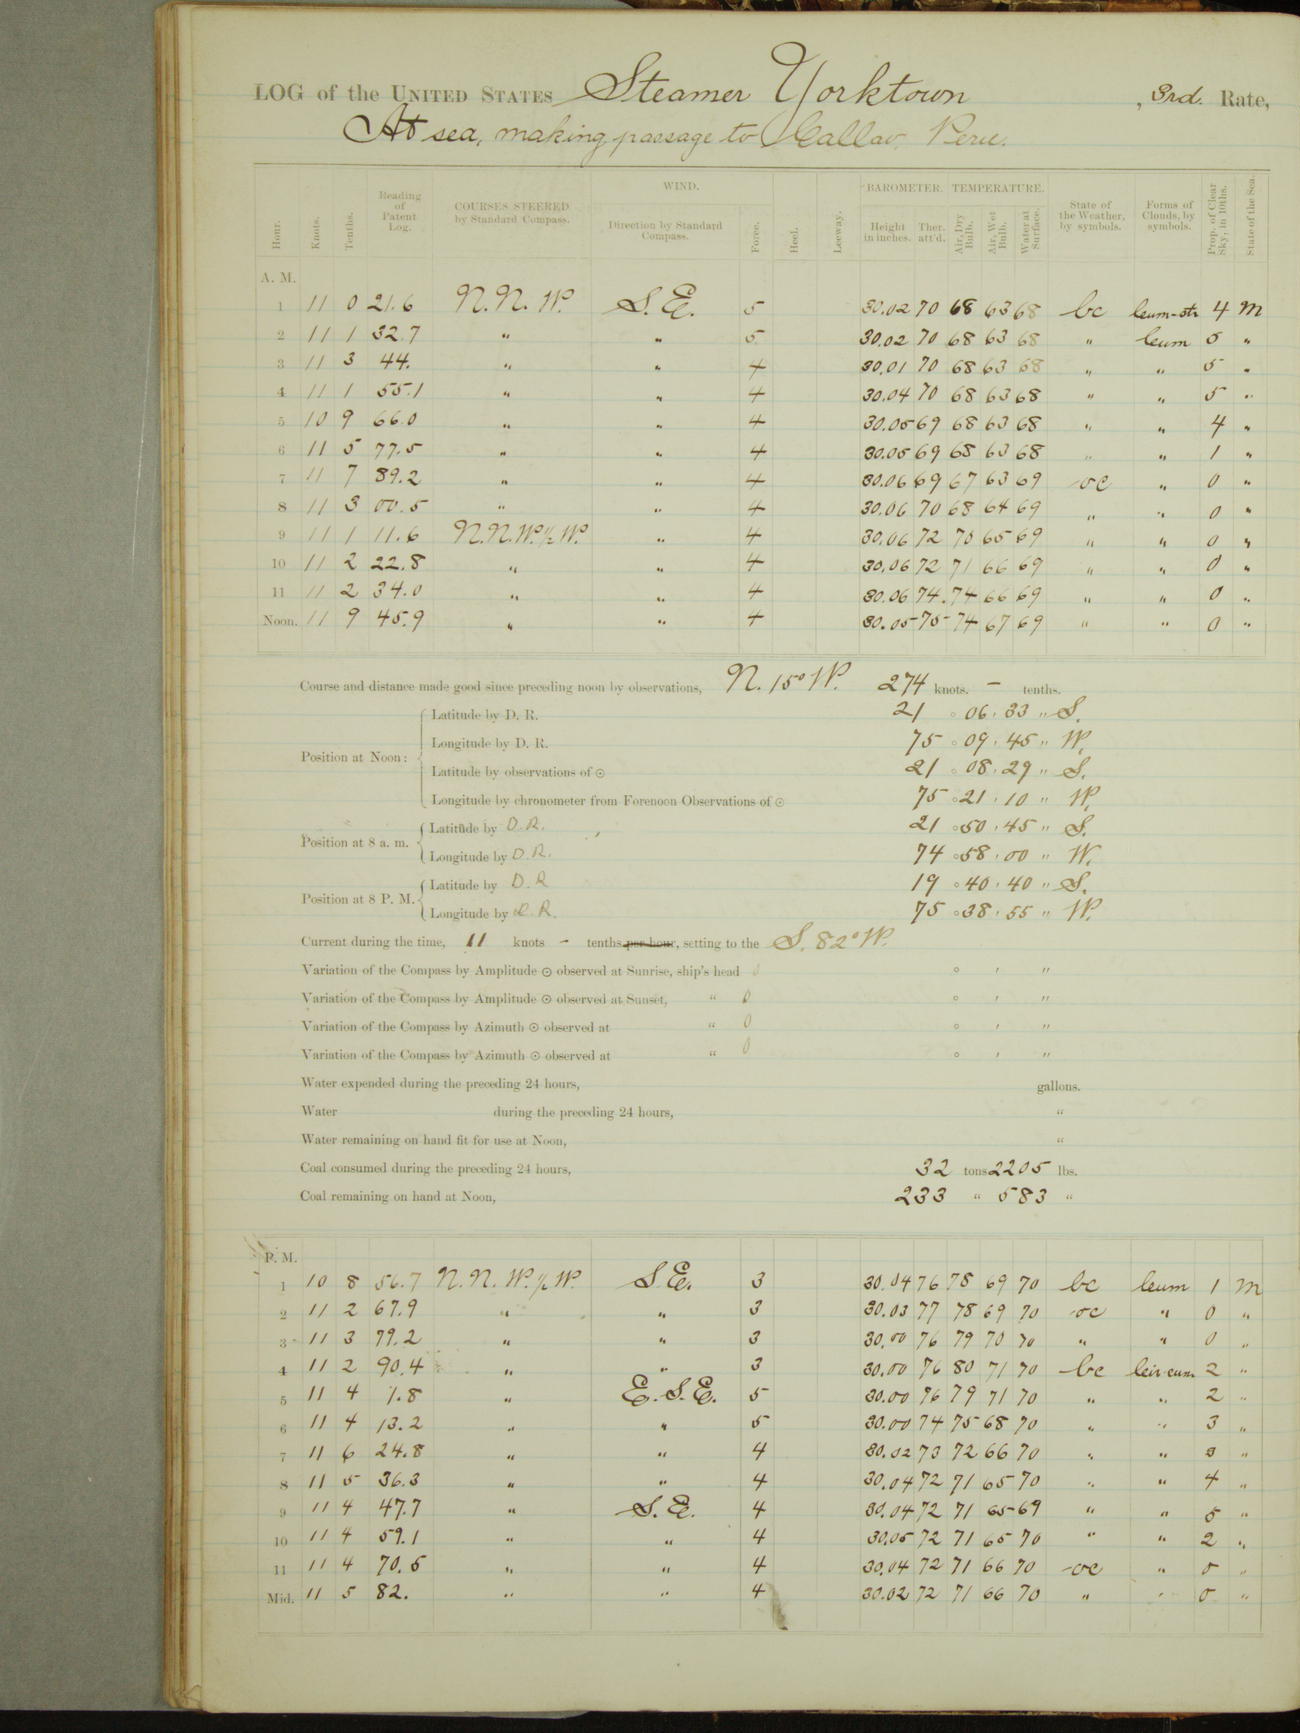 LOG of the UNITED STATES Steamer Yorktown, 3rd. Rate,
At sea, making passage to Callao, Peru.
Hour. Knots. Tenths. Reading of Patent Log. COURSES STEERED by Standard Compass. WIND. Direction by Standard Compass. Force. Heel. Leeway. BAROMETER. Height in inches. Ther. att'd. TEMPERATURE. Air, Dry Bulb. Air, Wet Bulb. Water at Surface. State of the Weather, by symbols. Forms of Clouds, by symbols. Prop. of Clear Sky, in 10ths. State of the Sea.
A. M.
1 11 0 21.6 N.N.W. S.E. 5 30.02 70 68 63 68 bc Cum-str 4 M
2 11 1 32.7 " " 5 30.02 70 68 63 68 " Cum 5 "
3 11 3 44. " " 4 30.01 70 68 63 68 " " 5 "
4 11 1 55.1 " " 4 30.04 70 68 63 68 " " 5 "
5 10 9 66.0 " " 4 30.05 69 68 63 68 " " 4 "
6 11 5 77.5 " " 4 30.05 69 68 63 68 " " 1 "
7 11 7 89.2 " " 4 30.06 69 67 63 69 oc " 0 "
8 11 3 00.5 " " 4 30.06 70 68 64 69 " " 0 "
9 11 1 11.6 N.N.W.½W. " 4 30.06 72 70 65 69 " " 0 "
10 11 2 22.8 " " 4 30.06 72 71 66 69 " " 0 "
11 11 2 34.0 " " 4 30.06 74. 74 66 69 " " 0 "
Noon. 11 9 45.9 " " 4 30.05 75 74 67 69 " " 0 "
Course and distance made good since preceding noon by observations, N. 15° W. 274 knots. - tenths.
Position at Noon: Latitude by D. R. 21 ° 06 ' 33 " S.
Longitude by D. R. 75 ° 09 ' 45 " W.
Latitude by observations of ☉ 21 ° 08 ' 29 " S.
Longitude by chronometer from Forenoon Observations of ☉ 75 ° 21 ' 10 " W.
Position at 8 a. m. Latitude by D.R. 21 ° 50 ' 45 " S.
Longitude by D.R. 74 ° 58 ' 00 " W.
Position at 8 P. M. Latitude by D.R 19 ° 40 ' 40 " S.
Longitude by D.R. 75 ° 38 ' 55 " W.
Current during the time, 11 knots - tenths per hour, setting to the S. 82° W.
Variation of the Compass by Amplitude ☉ observed at Sunrise, ship's head 0 ° ' "
Variation of the Compass by Amplitude ☉ observed at Sunset, " 0 ° ' "
Variation of the Compass by Azimuth ☉ observed at " 0 ° ' "
Variation of the Compass by Azimuth ☉ observed at " 0 ° ' "
Water expended during the preceding 24 hours, gallons.
Water during the preceding 24 hours, "
Water remaining on hand fit for use at Noon, "
Coal consumed during the preceding 24 hours, 32 tons 2205 lbs.
Coal remaining on hand at Noon, 233 " 583 "
P. M.
1 10 8 56.7 N.N.W.½W. S.E. 3 30.04 76 78 69 70 bc Cum 1 M
2 11 2 67.9 " " 3 30.03 77 78 69 70 oc " 0 "
3 11 3 79.2 " " 3 30.00 76 79 70 70 " " 0 "
4 11 2 90.4 " " 3 30.00 76 80 71 70 bc Cir-cum 2 "
5 11 4 1.8 " E.S.E. 5 30.00 76 79 71 70 " " 2 "
6 11 4 13.2 " " 5 30.00 74 75 68 70 " " 3 "
7 11 6 24.8 " " 4 30.02 73 72 66 70 " " 3 "
8 11 5 36.3 " " 4 30.04 72 71 65 70 " " 4 "
9 11 4 47.7 " S.E. 4 30.04 72 71 65 69 " " 5 "
10 11 4 59.1 " " 4 30.05 72 71 65 70 " " 2 "
11 11 4 70.5 " " 4 30.04 72 71 66 70 oc " 0 "
Mid. 11 5 82. " " 4 30.02 72 71 66 70 " " 0 "